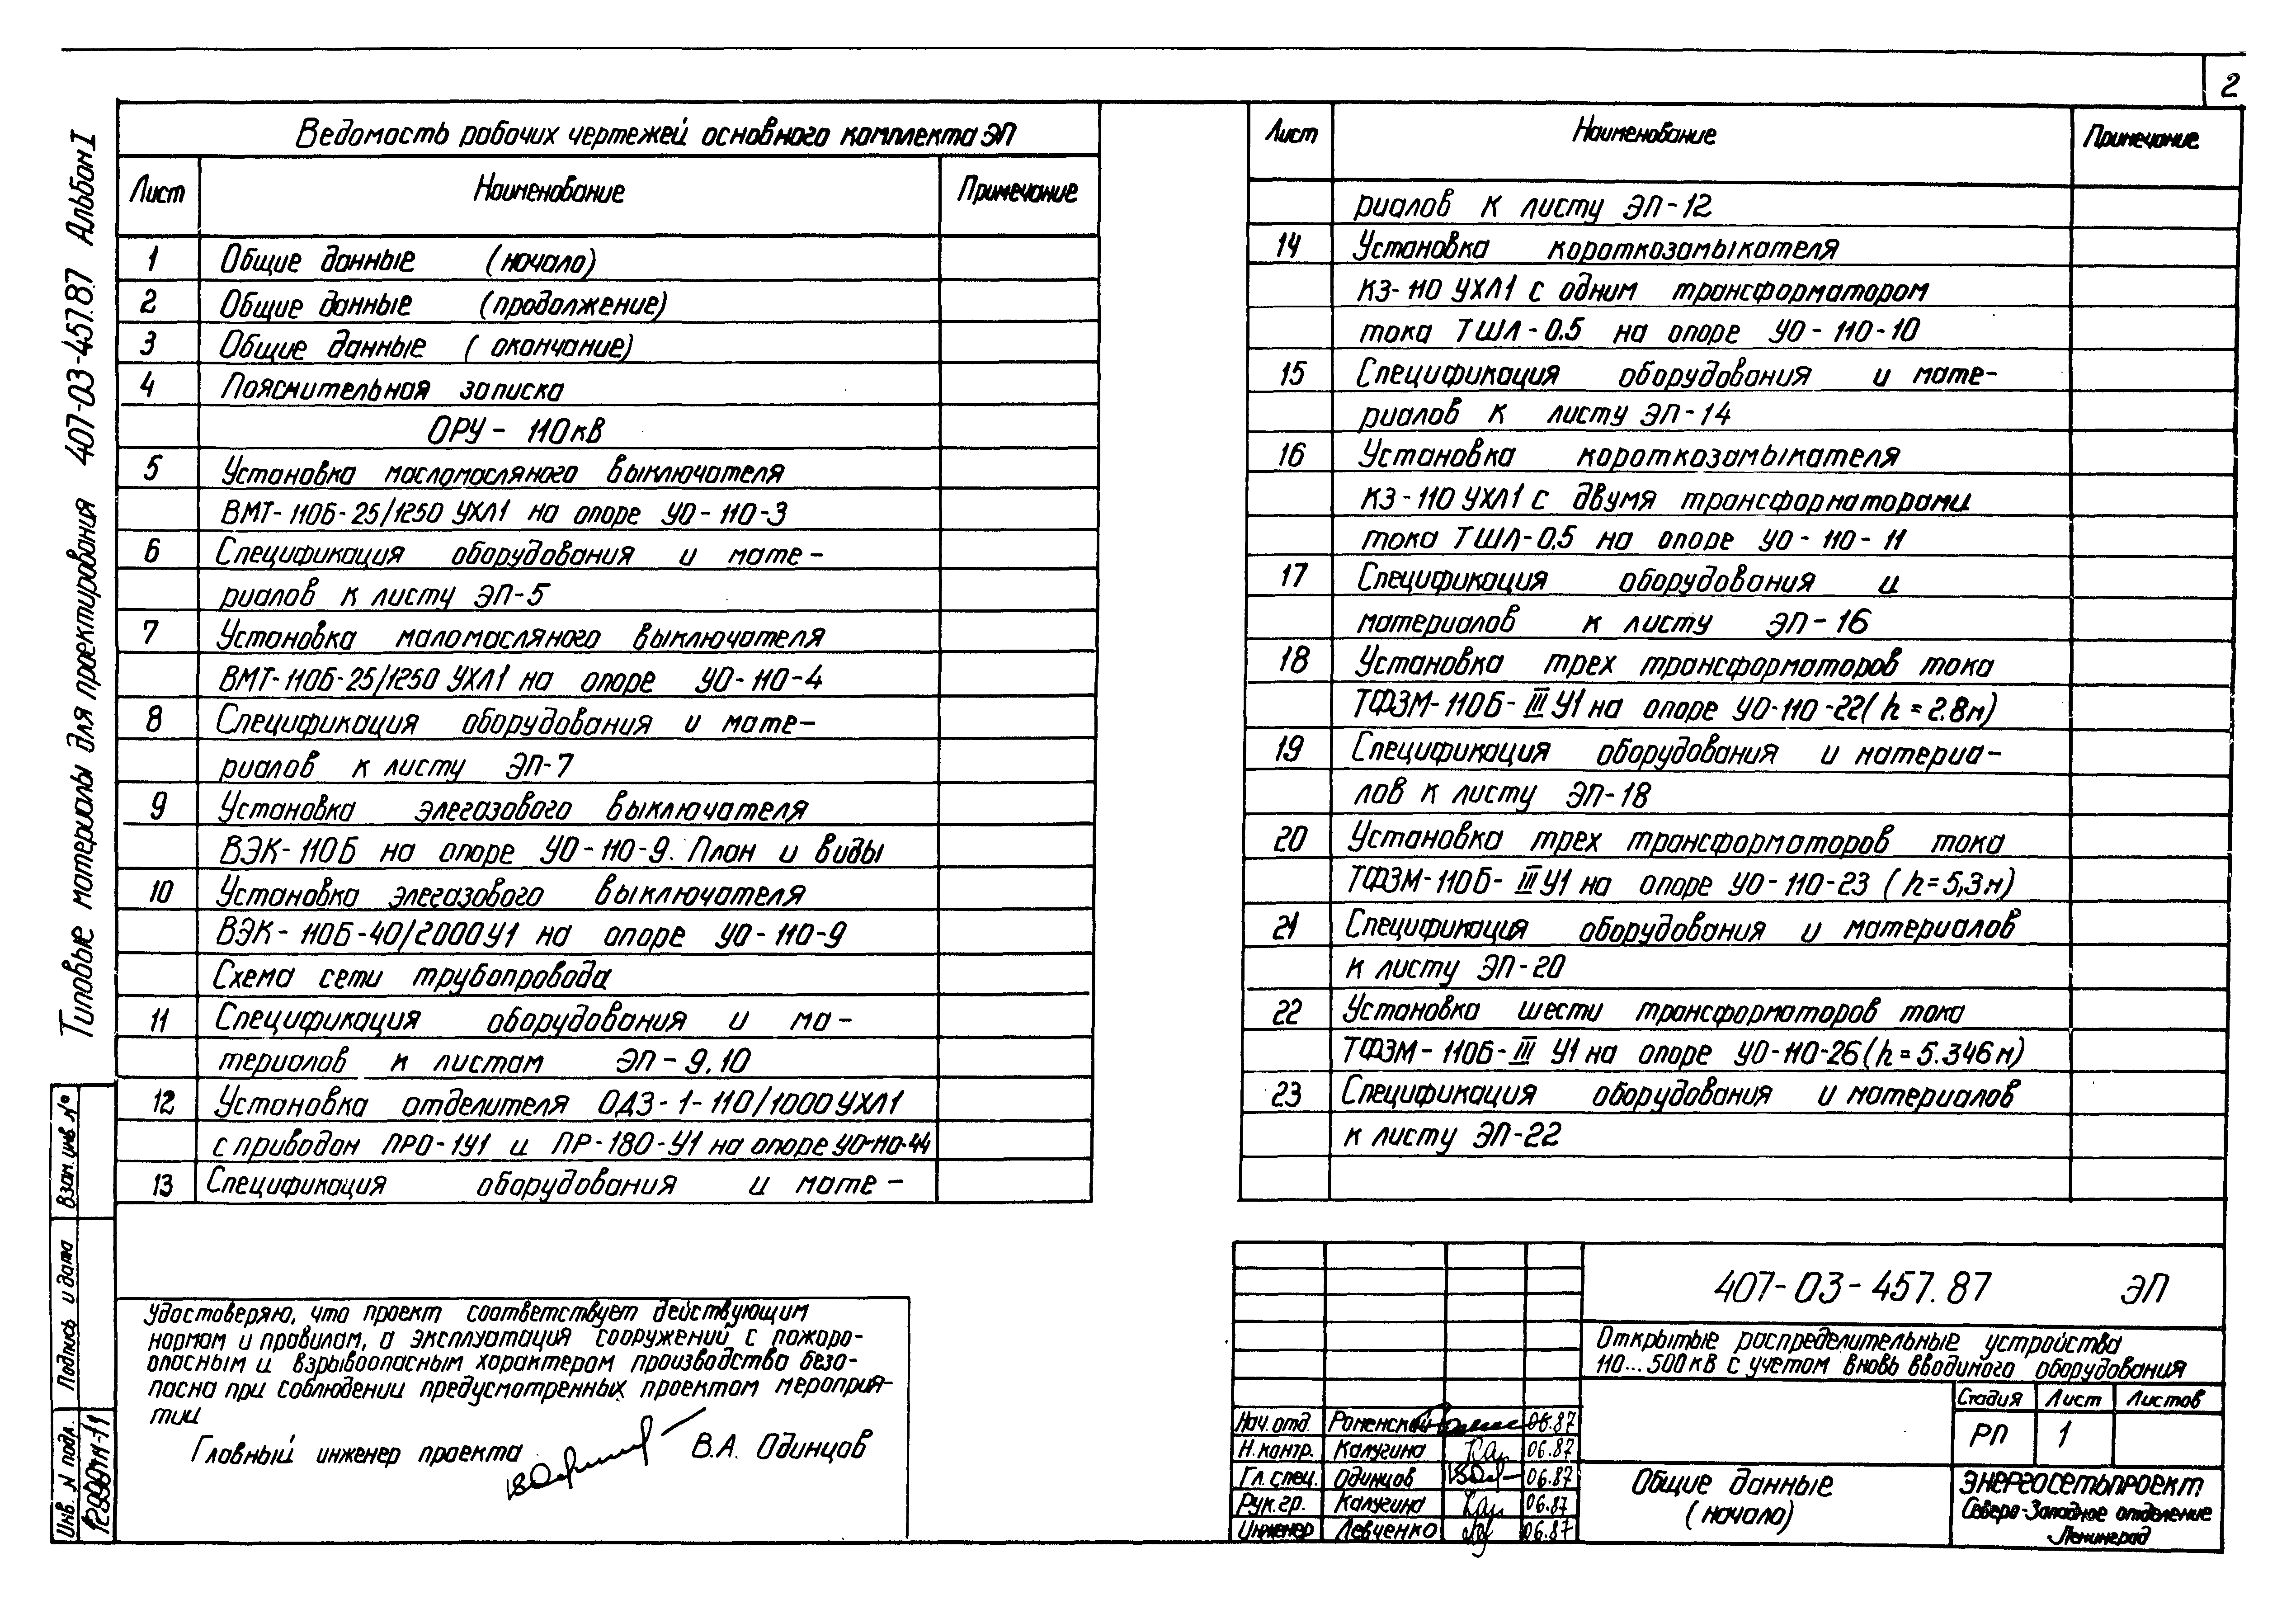 2
Типовые материалы для проектирования 407-03-457.87 Альбом I
Ведомость рабочих чертежей основного комплекта ЭП
Лист Наименование Примечание
1 Общие данные (начало)
2 Общие данные (продолжение)
3 Общие данные (окончание)
4 Пояснительная записка
ОРУ - 110 кВ
5 Установка масломасляного выключателя
ВМТ-110Б-25/1250 УХЛ1 на опоре УО-110-3
6 Спецификация оборудования и мате-
риалов к листу ЭП-5
7 Установка маломасляного выключателя
ВМТ-110Б-25/1250 УХЛ1 на опоре УО-110-4
8 Спецификация оборудования и мате-
риалов к листу ЭП-7
9 Установка элегазового выключателя
ВЭК-110Б на опоре УО-110-9. План и виды
10 Установка элегазового выключателя
ВЭК-110Б-40/2000У1 на опоре УО-110-9
Схема сети трубопровода
11 Спецификация оборудования и ма-
териалов к листам ЭП-9,10
12 Установка отделителя ОДЗ-1-110/1000 УХЛ1
с приводом ПРО-1У1 и ПР-180-У1 на опоре УО-110-44
13 Спецификация оборудования и мате-
Лист Наименование Примечание
риалов к листу ЭП-12
14 Установка короткозамыкателя
КЗ-110 УХЛ1 с одним трансформатором
тока ТШЛ-0.5 на опоре УО-110-10
15 Спецификация оборудования и мате-
риалов к листу ЭП-14
16 Установка короткозамыкателя
КЗ-110 УХЛ1 с двумя трансформаторами
тока ТШЛ-0.5 на опоре УО-110-11
17 Спецификация оборудования и
материалов к листу ЭП-16
18 Установка трех трансформаторов тока
ТФЗМ-110Б-III У1 на опоре УО-110-22 (h=2.8м)
19 Спецификация оборудования и материа-
лов к листу ЭП-18
20 Установка трех трансформаторов тока
ТФЗМ-110Б-III У1 на опоре УО-110-23 (h=5,3м)
21 Спецификация оборудования и материалов
к листу ЭП-20
22 Установка шести трансформаторов тока
ТФЗМ-110Б-III У1 на опоре УО-110-26 (h=5.346м)
23 Спецификация оборудования и материалов
к листу ЭП-22
Взам. инв. №
Подпись и дата
Инв. N подл.
Удостоверяю, что проект соответствует действующим
нормам и правилам, а эксплуатация сооружений с пожаро-
опасным и взрывоопасным характером производства безо-
пасна при соблюдении предусмотренных проектом мероприя-
тий
Главный инженер проекта В.А. Одинцов
407-03-457.87 ЭП
Открытые распределительные устройства
110...500 кВ с учетом вновь вводимого оборудования
Стадия Лист Листов
РП 1
Нач. отд. Роменский 06.87
Н. контр. Калугина 06.87
Гл. спец. Одинцов 06.87
Рук. гр. Калугина 06.87
Инженер Левченко 06.87
Общие данные
(начало)
ЭНЕРГОСЕТЬПРОЕКТ
Северо-Западное отделение
Ленинград